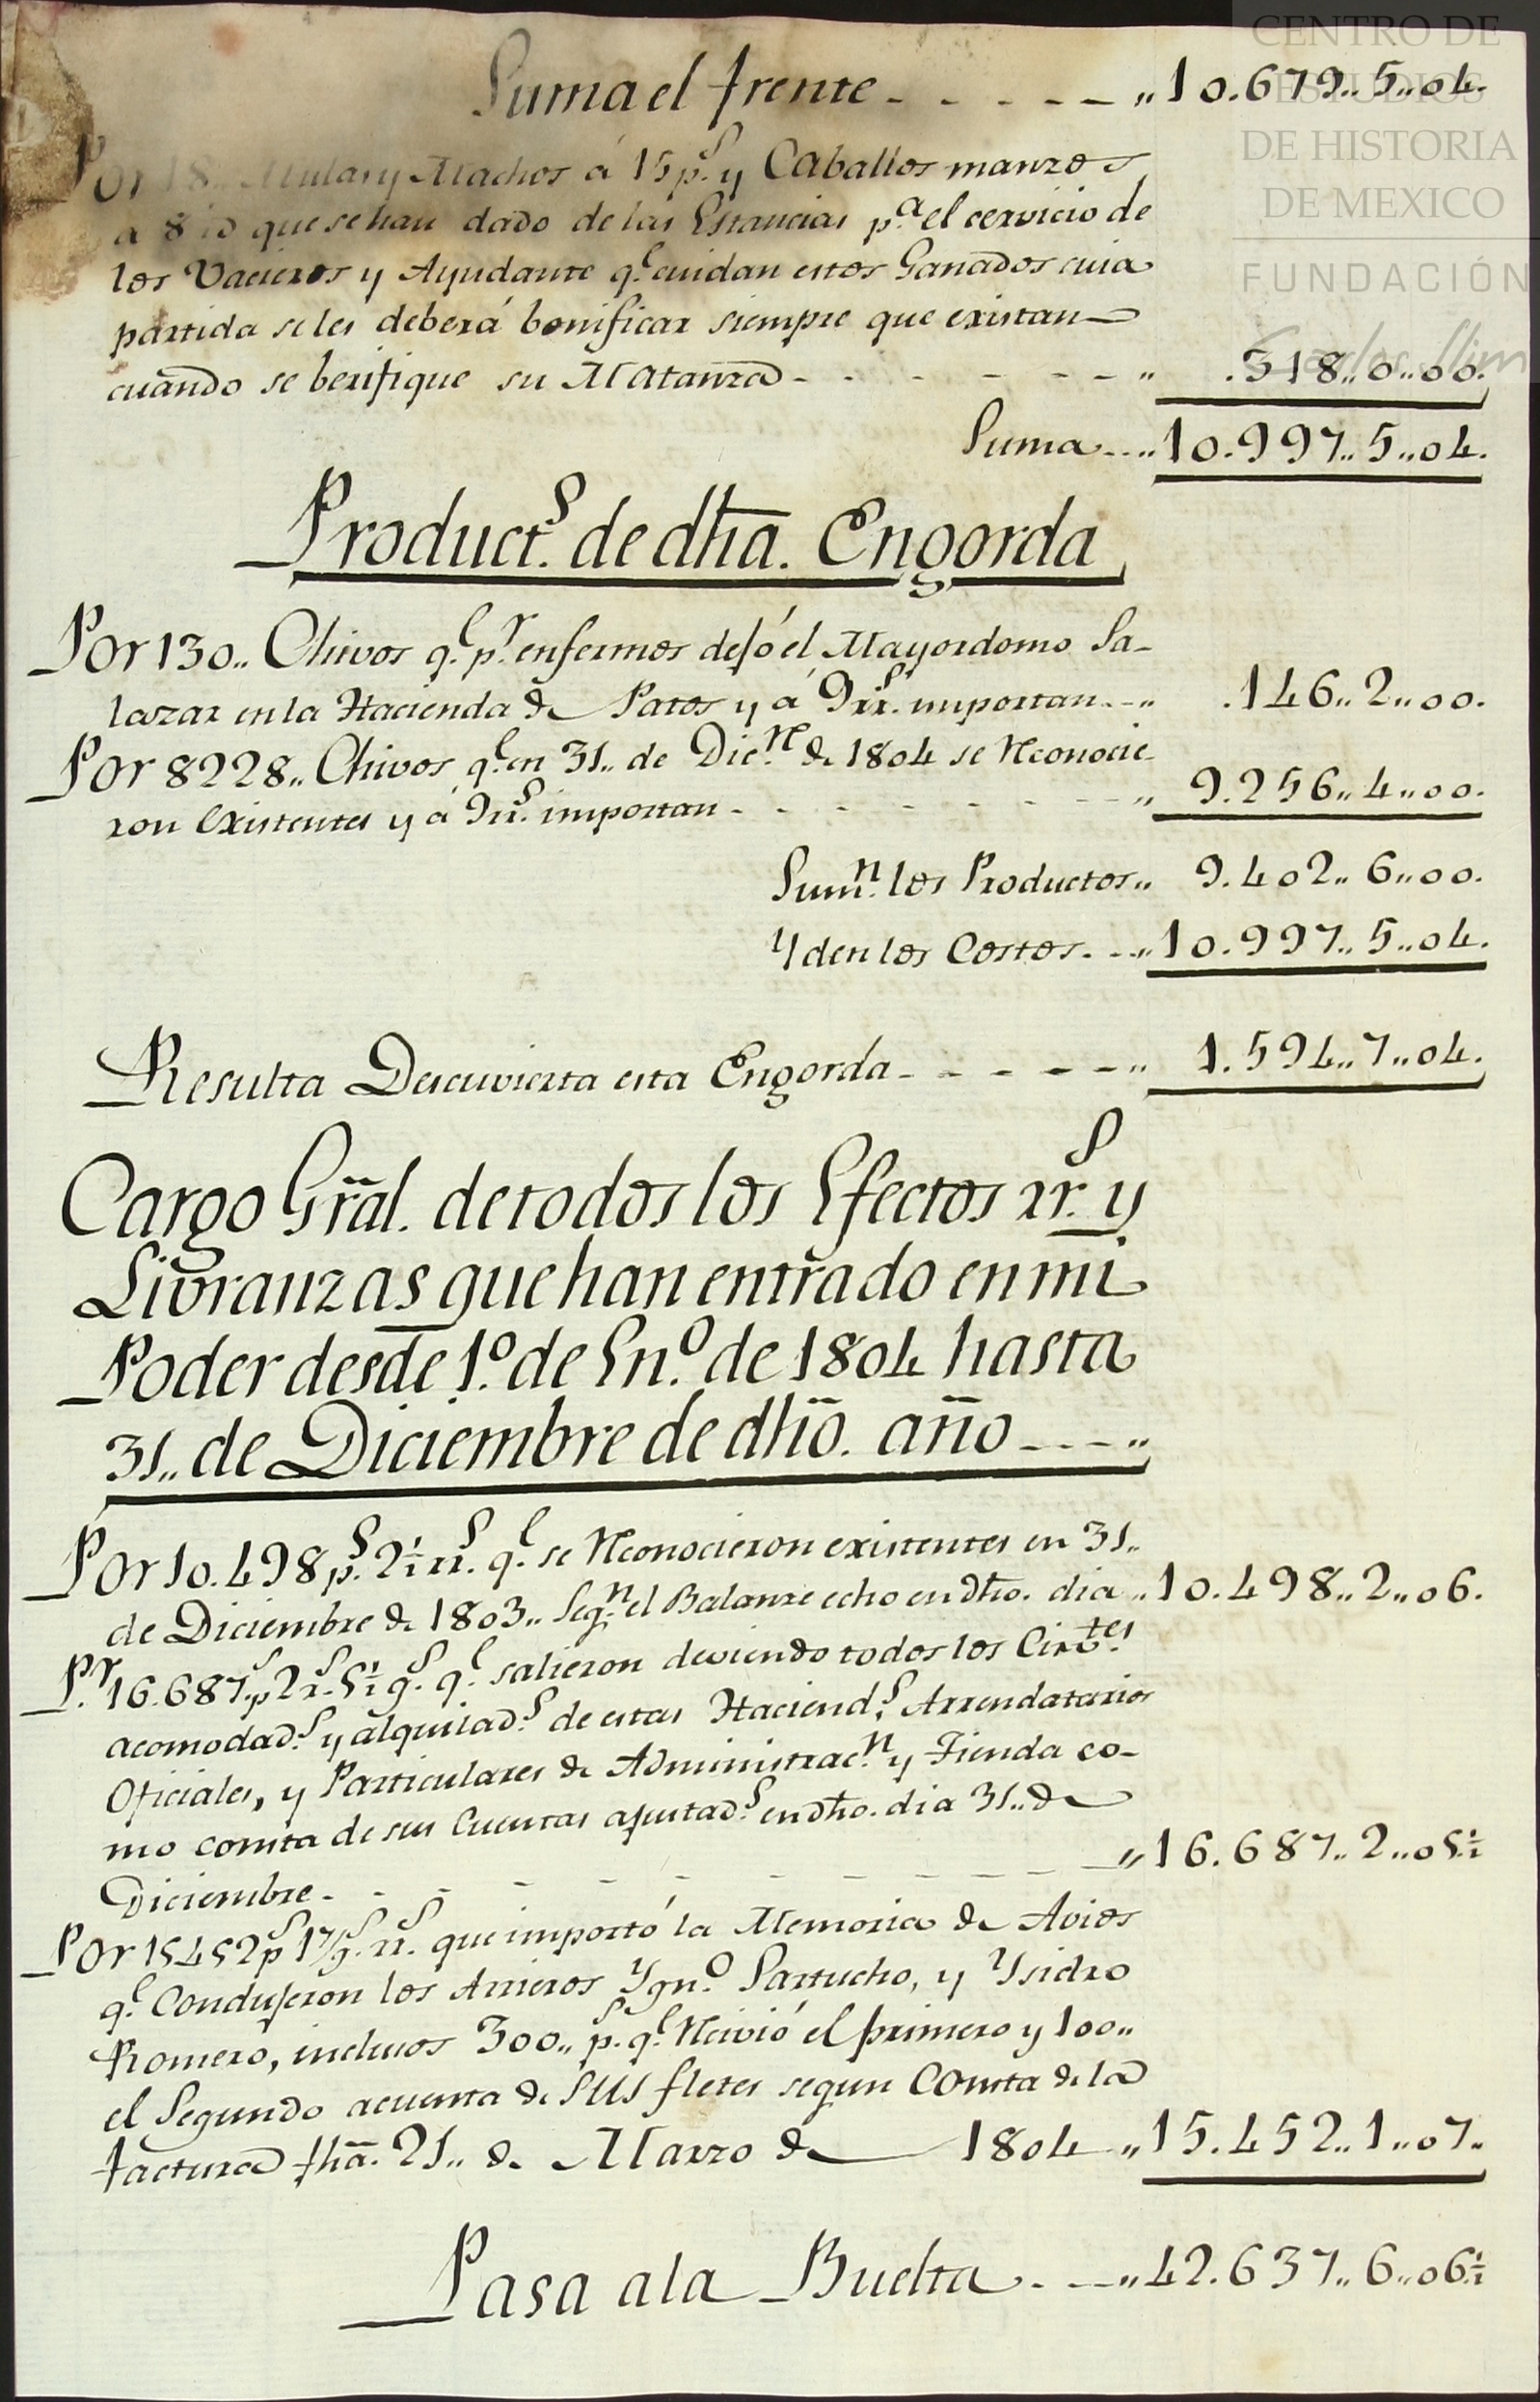 CENTRO DE
ESTUDIOS
DE HISTORIA
DE MEXICO
FUNDACIÓN
Carlos Slim
Suma el frente - - - - - „ 10.679.. 5.. 04.
Por 18.. Mulas y Machos á 15 p.s y Caballos manzos
a 8 id que se han dado de las Estancias p.a el cervicio de
los Vacieros y Ayudante q.e cuidan estos Ganados cuia
partida se les deberá bonificar siempre que existan
cuando se berifique su Matanza - - - - - - - „ .318.. 0.. 00.
Suma - - „ 10.997.. 5.. 04.
Product.s de dha. Engorda
Por 130.. Chivos q.e p.r enfermos dejó el Mayordomo Sa-
lazar en la Hacienda de Patos y á 9 rr.s importan - - „ .146.. 2.. 00.
Por 8228.. Chivos q.e en 31.. de Dic.re de 1804 se Reconocie-
ron Existentes y á 9 rr.s importan - - - - - - - „ 9.256.. 4.. 00.
Sum.n los Productos „ 9.402.. 6.. 00.
Yden los Costos - - „ 10.997.. 5.. 04.
Resulta Descuvierta esta Engorda - - - - - „ 1.594.. 7.. 04.
Cargo Grãl. de todos los Efectos rr.s y
Livranzas que han entrado en mi
Poder desde 1.o de En.o de 1804 hasta
31.. de Diciembre de dho. año - - - „
Por 10.498 p.s 2½ rr.s q.e se Reconocieron existentes en 31..
de Diciembre de 1803.. Seg.n el Balanze echo en dho. dia „ 10.498.. 2.. 06.
P.r 16.687 p.s 2 r.s 5½ g.s q.e salieron deviendo todos los Sirv.tes
acomodad.s y alquilad.s de estas Haciend.s Arrendatarios
Oficiales, y Particulares de Administrac.n y Tienda co-
mo consta de sus Cuentas ajustad.s en dho. dia 31.. de
Diciembre - - - - - - - - - „ 16.687.. 2.. 05½
Por 15452 p.s 1 7/g.s rr.s que importó la Memoria de Avios
q.e Condujeron los Arrieros Ygn.o Sartucho, y Ysidro
Romero, inclusos 300.. p.s q.e Recivió el primero y 100..
el Segundo acuenta de sus fletes segun Consta de la
factura fhã. 21.. de Marzo de 1804 „ 15.452.. 1.. 07..
Pasa a la Buelta - - „ 42.637.. 6.. 06½